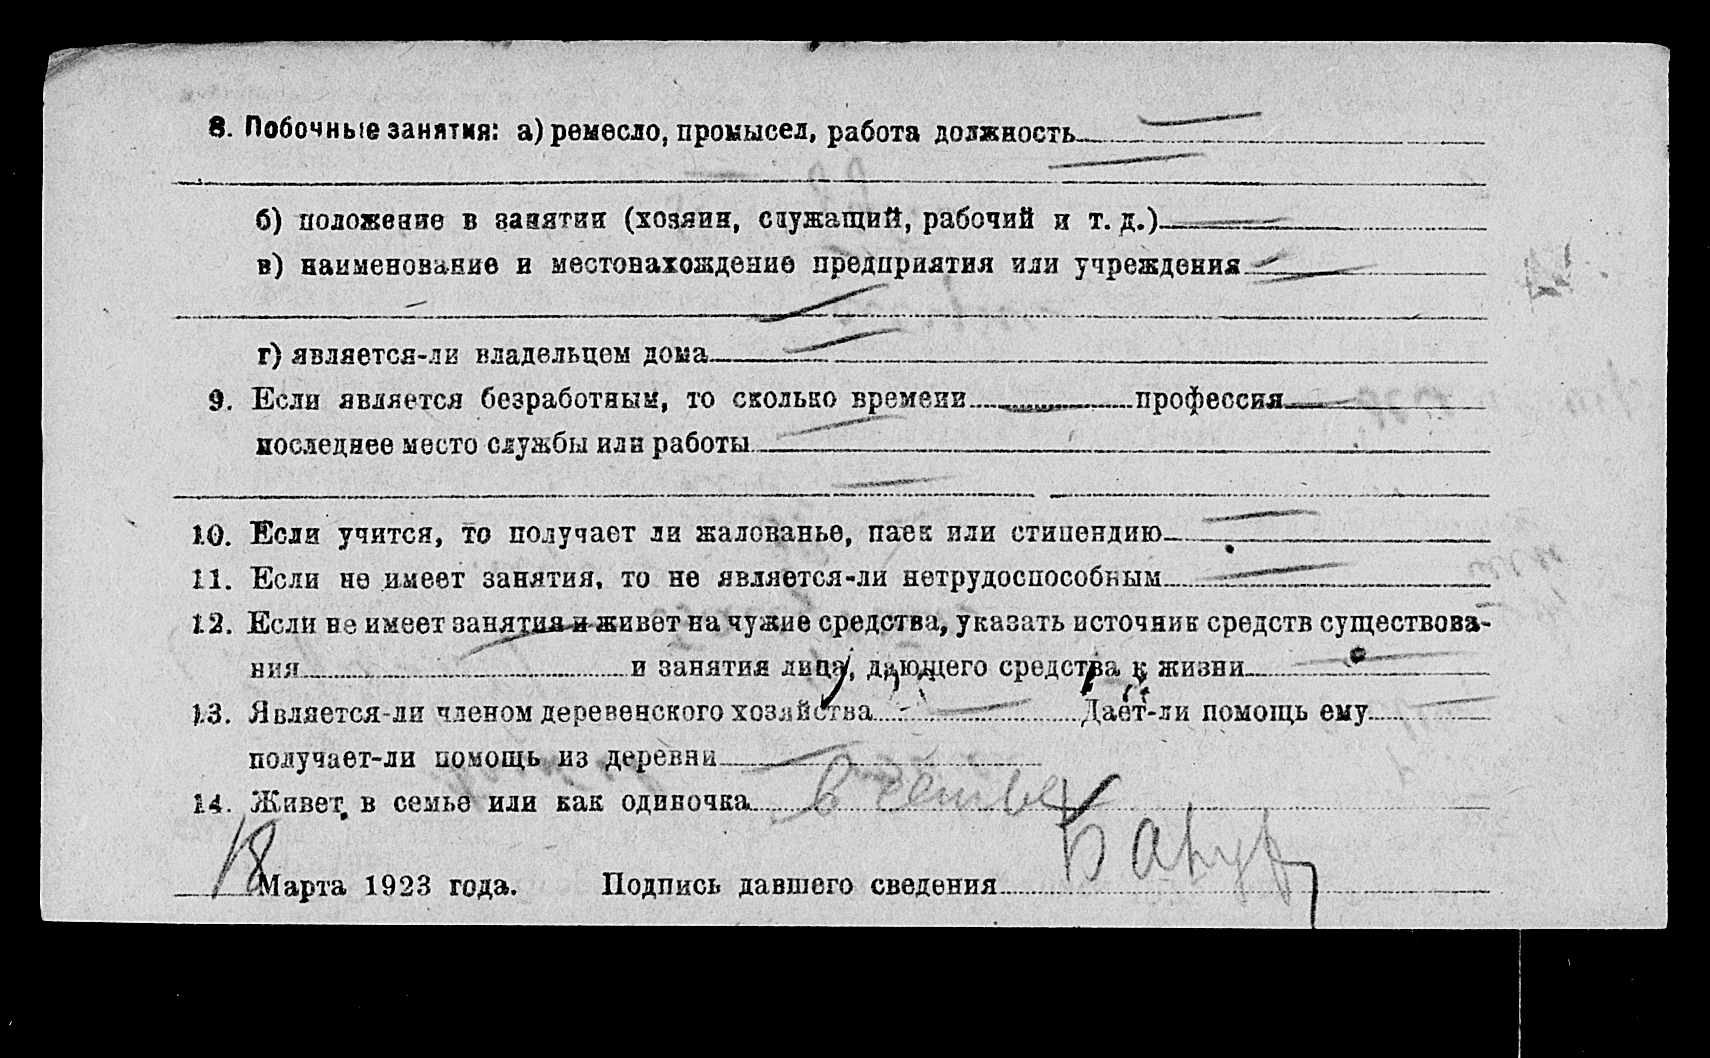 8. Побочные занятия: а) ремесло, промысел, работа должность —
—
б) положение в занятии (хозяин, служащий, рабочий и т. д.) —
в) наименование и местонахождение предприятия или учреждения —
—
г) является-ли владельцем дома —
9. Если является безработным, то сколько времени — профессия —
последнее место службы или работы —
—
10. Если учится, то получает ли жалованье, паек или стипендию —
11. Если не имеет занятия, то не является-ли нетрудоспособным —
12. Если не имеет занятия и живет на чужие средства, указать источник средств существова-
ния — и занятия лица, дающего средства к жизни —
13. Является-ли членом деревенского хозяйства — Дает-ли помощь ему —
получает-ли помощь из деревни —
14. Живет в семье или как одиночка в семье
18 Марта 1923 года. Подпись давшего сведения